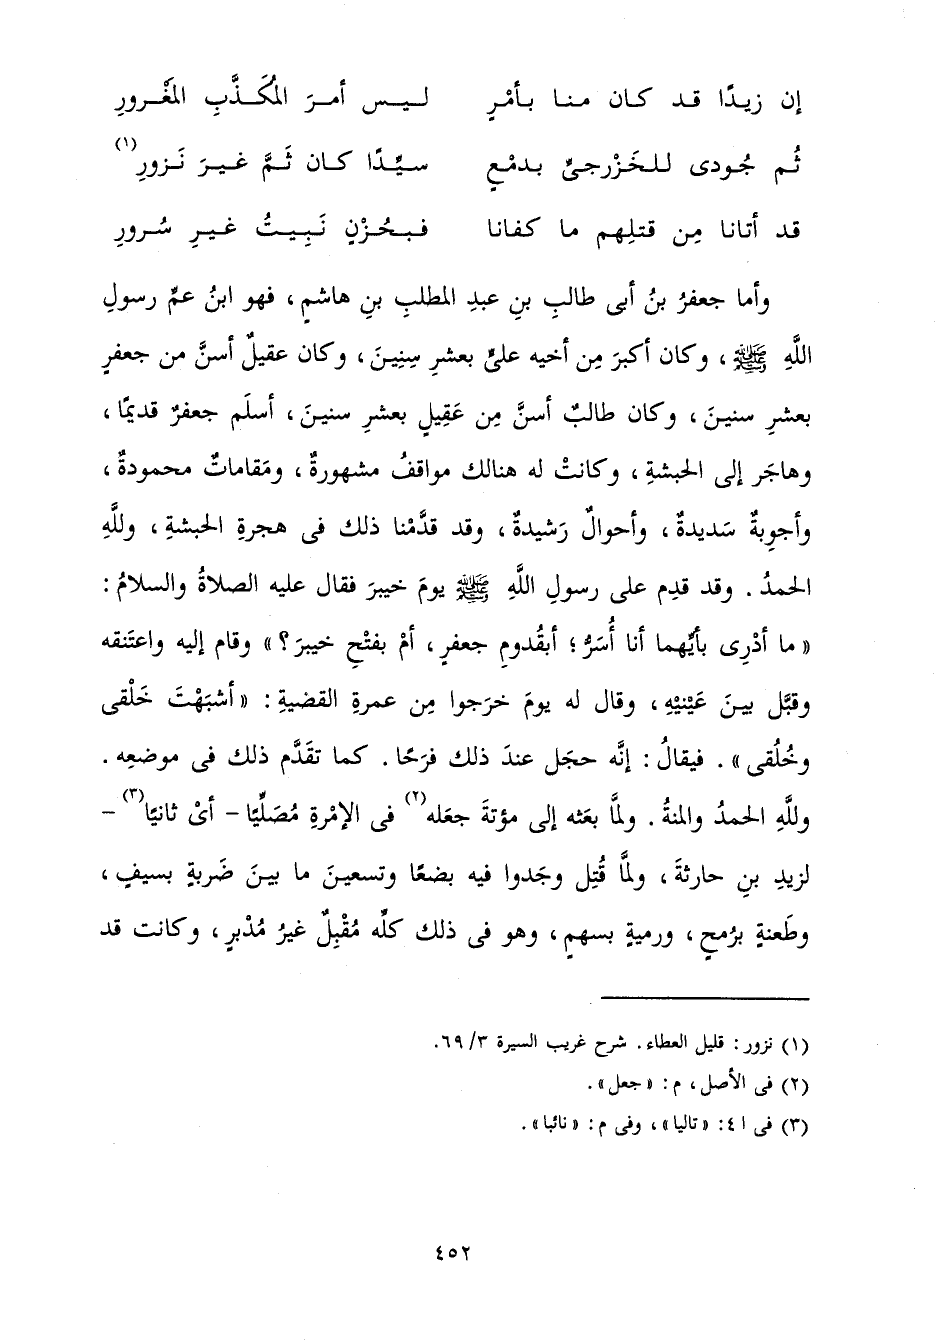 إن زيدًا قد كان منا بأمْرٍ ليس أمرَ المُكَذَّبِ المَغْرورِ
ثُم جُودى للخَزْرجىِّ بدمْعٍ سيِّدًا كان ثَمَّ غيرَ نَزورِ(١)
قد أتانا مِن قتلِهم ما كفانا فبحُزْنٍ نَبِيتُ غيرِ سُرورِ
وأما جعفرُ بنُ أبى طالبِ بنِ عبدِ المطلبِ بنِ هاشمٍ، فهو ابنُ عمِّ رسولِ
اللَّهِ ﷺ، وكان أكبرَ مِن أخيه علىٍّ بعشرِ سِنِينَ، وكان عقيلٌ أسنَّ من جعفرٍ
بعشرِ سنينَ، وكان طالبٌ أسنَّ مِن عَقِيلٍ بعشرِ سنينَ، أسلَم جعفرٌ قديمًا،
وهاجَر إلى الحبشةِ، وكانتْ له هنالك مواقفُ مشهورةٌ، ومَقاماتٌ محمودةٌ،
وأجوِبةٌ سَديدةٌ، وأحوالٌ رَشيدةٌ، وقد قدَّمْنا ذلك فى هجرةِ الحبشةِ، وللَّهِ
الحمدُ. وقد قدِم على رسولِ اللَّهِ ﷺ يومَ خيبرَ فقال عليه الصلاةُ والسلامُ:
«ما أدْرِى بأيِّهما أنا أُسَرُّ؛ أبقُدومِ جعفرٍ، أمْ بفتْحِ خيبرَ؟» وقام إليه واعتَنقه
وقبَّل بينَ عَيْنَيْهِ، وقال له يومَ خرَجوا مِن عمرةِ القضيةِ: «أشبَهْتَ خَلْقى
وخُلُقى». فيقالُ: إنَّه حجَل عندَ ذلك فرَحًا. كما تقَدَّم ذلك فى موضعِه.
وللَّهِ الحمدُ والمنةُ. ولمَّا بعَثه إلى مؤتةَ جعَله(٢) فى الإمْرةِ مُصَلِّيًا - أىْ ثانيًا(٣) -
لزيدِ بنِ حارثةَ، ولمَّا قُتِل وجَدوا فيه بضعًا وتسعينَ ما بينَ ضَربةٍ بسيفٍ،
وطَعنةٍ برُمحٍ، ورميةٍ بسهمٍ، وهو فى ذلك كلِّه مُقْبِلٌ غيرُ مُدْبرٍ، وكانت قد
(١) نزور: قليل العطاء. شرح غريب السيرة ٣/ ٦٩.
(٢) فى الأصل، م: «جعل».
(٣) فى ا ٤: «تاليا»، وفى م: «نائبا».
٤٥٢